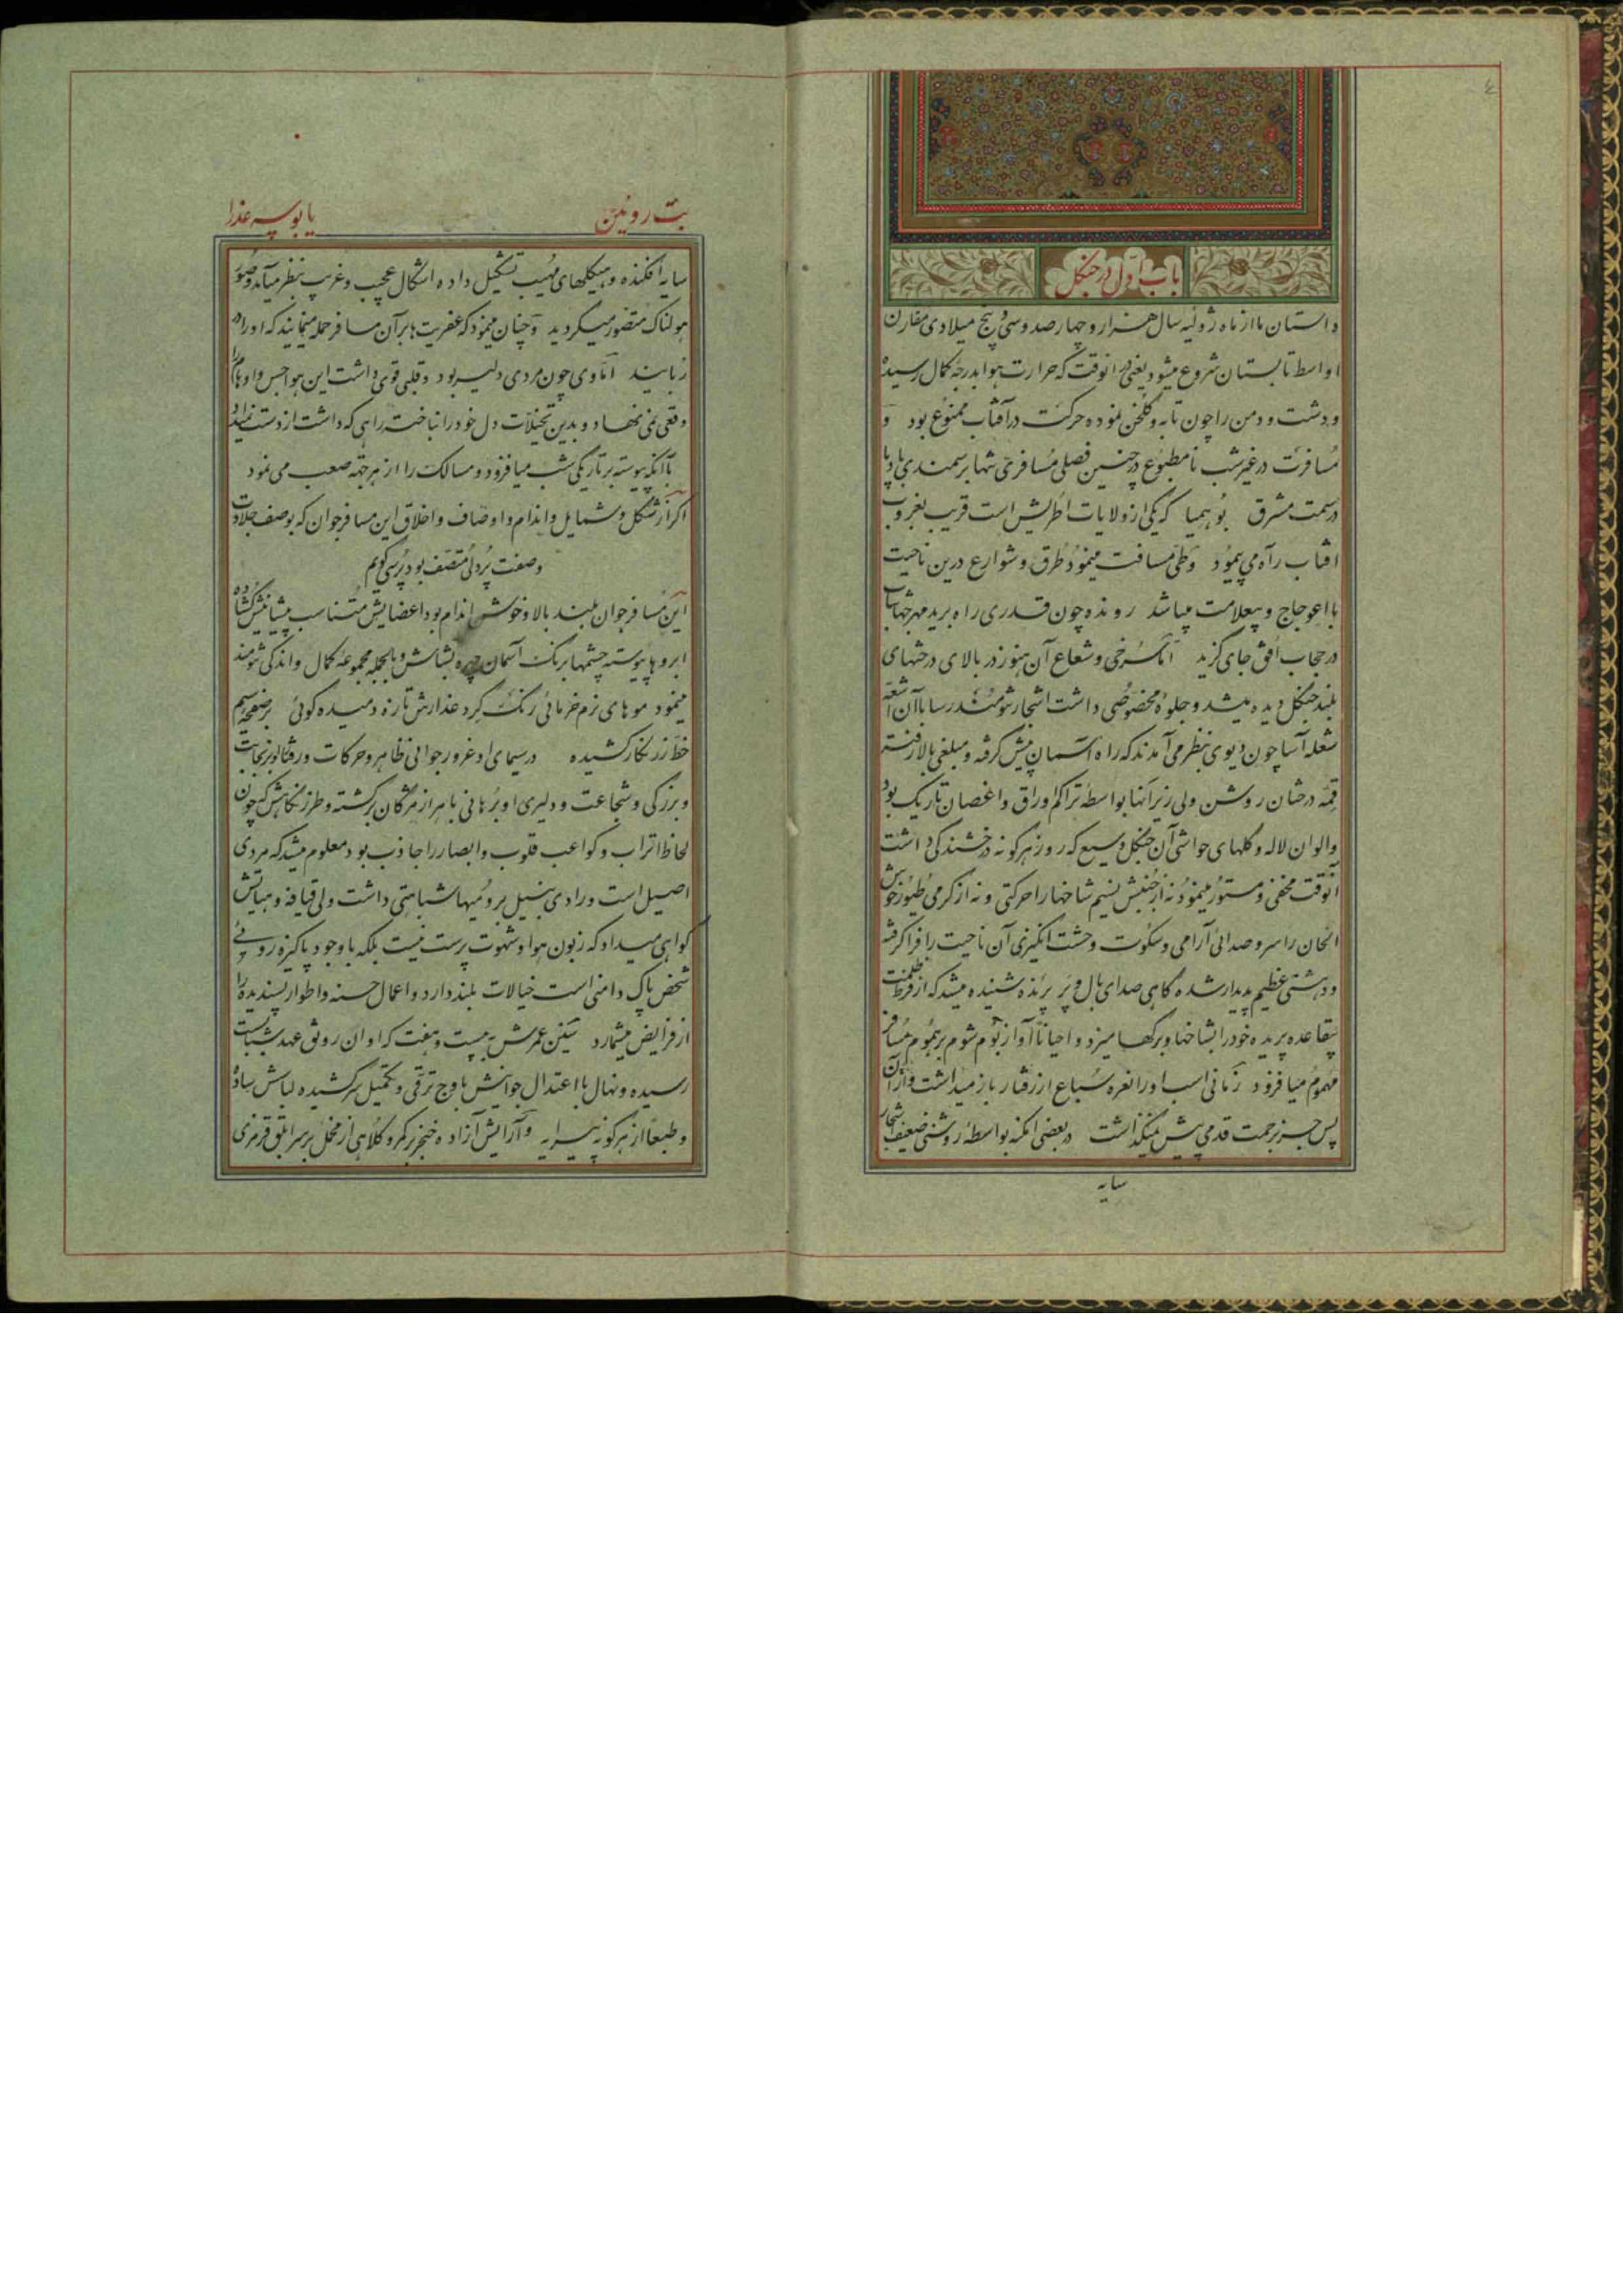 باب اول در جنگل
داستان ما از ماه ژولیه سال هزار و چهارصد و سی و پنج میلادی مقارن
اواسط تابستان شروع میشود یعنی در انوقت که حرارت هوا بدرجهٔ کمال رسیده
و دشت و دمن را چون تابه و گلخن نموده حرکت در آفتاب ممنوع بود و
مسافرت در غیر شب نامطبوع در چنین فصلی مسافری تنها بر سمندی باد پا
در سمت مشرق بوهمیا که یکی از ولایات اطریش است قریب بغروب
افتاب راه می پیمود و طی مسافت مینمود طرق و شوارع درین ناحیت
با اعوجاج و بیعلامت میباشد رونده چون قدری راه برید مهر جهانتاب
در حجاب افق جای گزید اما سرخی و شعاع آن هنوز در بالای درختهای
بلند جنگل دیده میشد و جلوهٔ مخصوصی داشت اشجار تنومند رسا باآن اشعه
شعله آسا چون دیوی بنظر می آمدند که راه آسمان پیش گرفته و مبلغی بالا رفته
قمه درختان روشن ولی زیر آنها بواسطه تراکم اوراق و اغصان تاریک بود
و الوان لاله و گلهای حواشی آن جنگل وسیع که روز هرگونه درخشندگی داشت
آنوقت مخفی و مستور مینمود نه از جنبش نسیم شاخها را حرکتی و نه از گرمی طیور خوش
الحان را سر و صدائی آرامی و سکوت وحشت انگیزی آن ناحیت را فرا گرفته
و دهشتی عظیم پدیدار شده گاهی صدای بال و پر پرنده شنیده میشد که از فرط ظلمت
بیقاعده پریده خود را بشاخها و برگها میزد و احیانا آواز بوم شوم بر هموم مسافر
مهموم میافزود زمانی اسب او را نعره سباع از رفتار باز میداشت و از آن
پس جز بزحمت قدمی پیش نمیگذاشت در بعضی امکنه بواسطه روشنی ضعیف اشجار
سایه
بت روئین یا بوسه عذرا
سایه افکنده و هیکلهای مهیب تشکیل داده اشکال عجیب و غریب بنظر میآمد و صور
هولناک متصور میگردید و چنان مینمود که عفریت‌ها بر آن مسافر حمله مینمایند که او را در
ربایند اما وی چون مردی دلیر بود و قلبی قوی داشت این هواجس و اوهام را
وقعی نمی نهاد و بدین تخیلات دل خود را نباخته راهی که داشت از دست نمیداد
با آنکه پیوسته بر تاریکی شب میافزود و مسالک را از هر جهة صعب می نمود
اگر از شکل و شمایل و اندام و اوصاف و اخلاق این مسافر جوان که بوصف جلادت
و صفت پردلی متصف بود پرسی گویم
این مسافر جوان بلند بالا و خوش اندام بود اعضایش متناسب پیشانیش گشاده
ابروها پیوسته چشمها برنگ آسمان چهره بشاش و بالجمله مجموعه کمال و اندکی تنومند
مینمود موهای نرم خرمائی رنگ گرد عذارش تازه دمیده گوئی بر صفحهٔ سیم
خط زرنگار کشیده در سیمای او غرور جوانی ظاهر و حرکات و رفتار او بر نجابت
و بزرگی و شجاعت و دلیری او برهانی باهر از مژگان برگشته و طرز نگاهش که چون
لحاظ اتراب و کواعب قلوب و ابصار را جاذب بود معلوم میشد که مردی
اصیل است و رادی بنبیل برومیها شباهتی داشت ولی قیافه و هیاتش
گواهی میداد که زبون هوا و شهوت پرست نیست بلکه با وجود پاکیزه روئی
شخص پاک دامنی است خیالات بلند دارد و اعمال حسنه و اطوار پسندیده را
از فرایض میشمارد سنین عمرش به بیست و هفت که اوان رونق عهد شبابست
رسیده و نهال با اعتدال جوانیش باوج ترقی و تکمیل سر کشیده لباسش ساده
و طبعا از هرگونه پیرایه و آرایش آزاده خنجر بر کمر و کلاهی از مخمل بر سر ابلق قرمزی